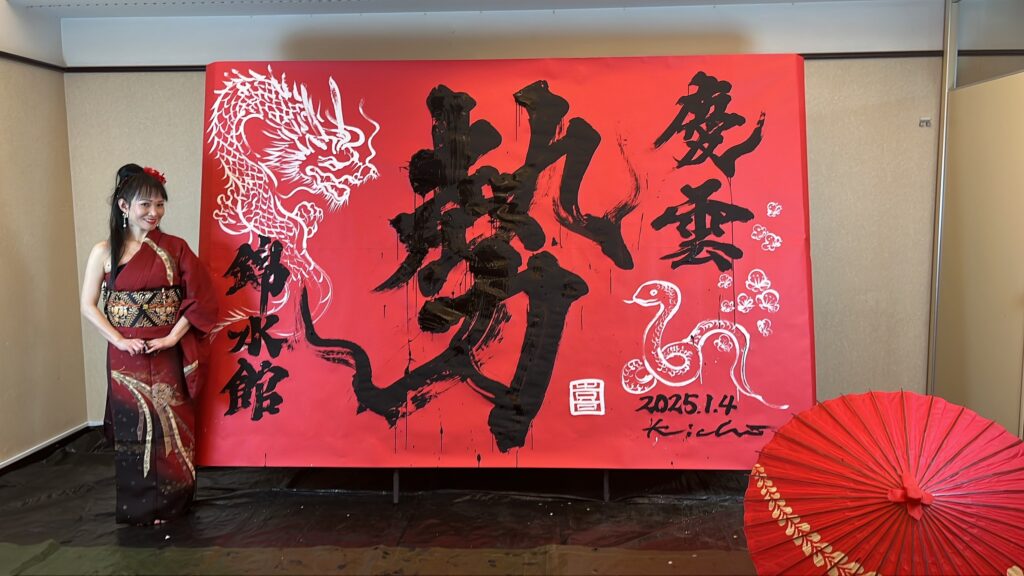 慶雲
勢
錦水館
2025.1.4
Kichō